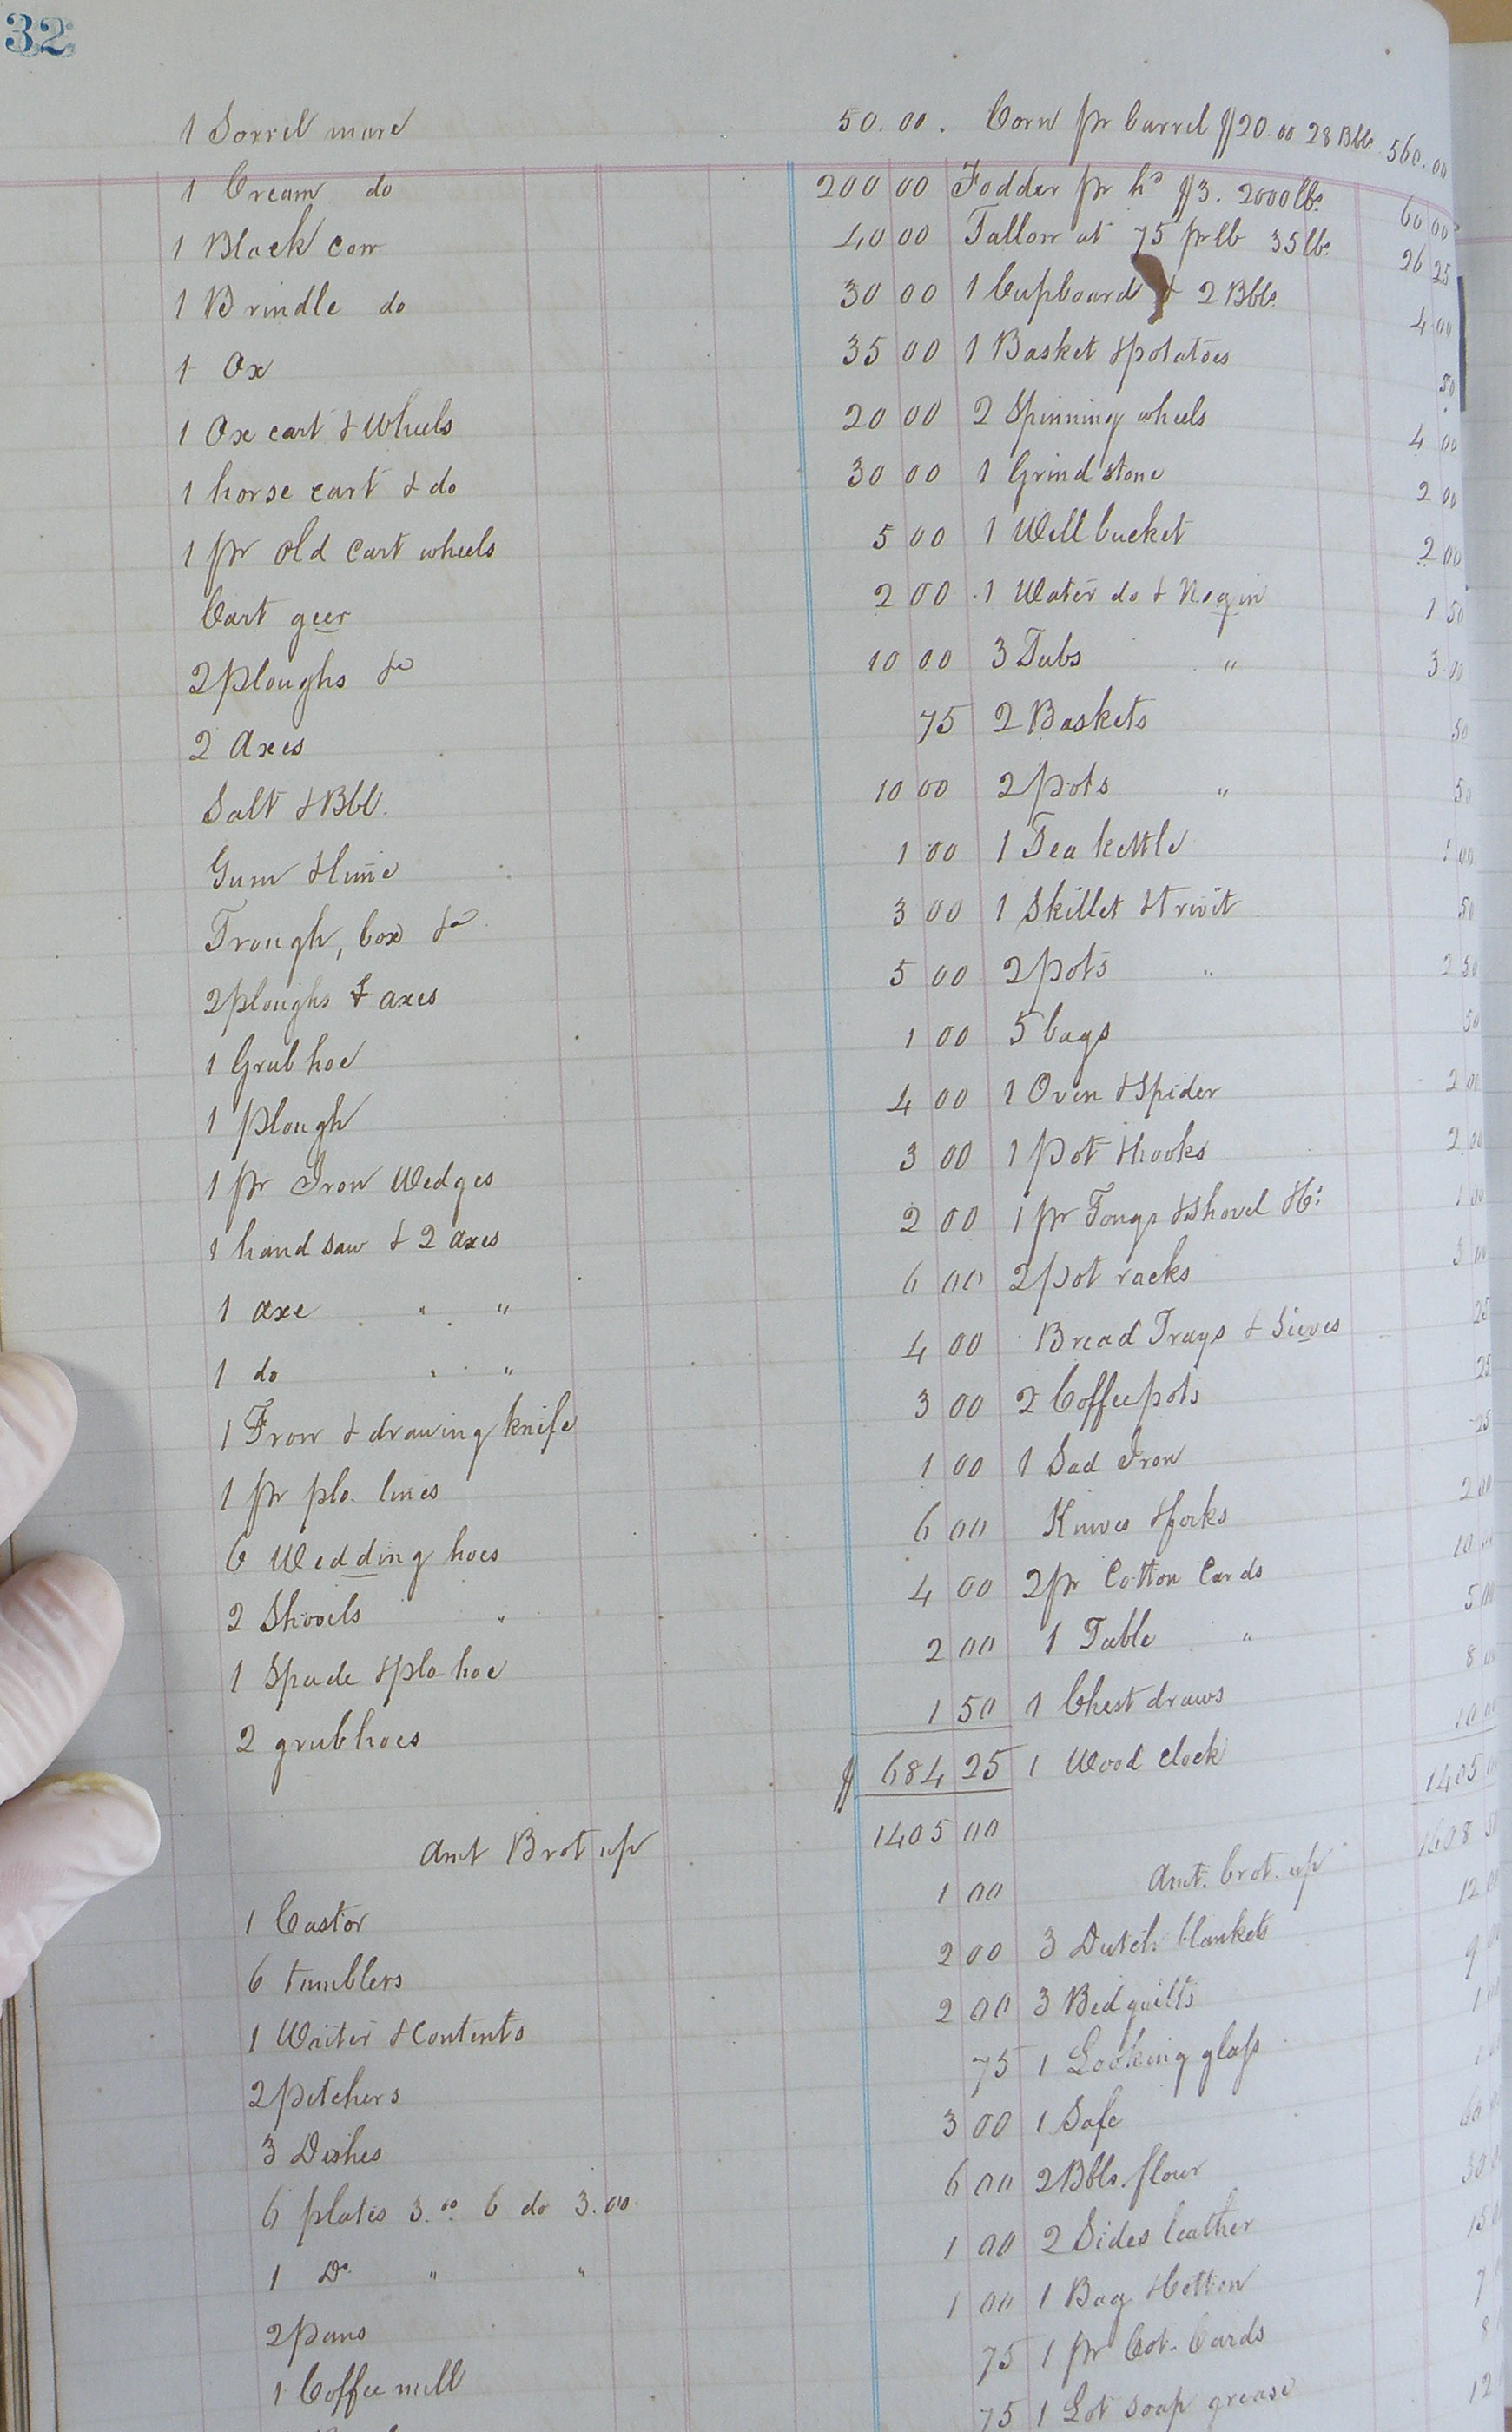 32
1 Sorrel mare 50.00. Corn pr barrel $20.00 28 Bbls 560.00
1 Cream do 200 00 Fodder pr hd $3. 2000 lbs. 60 00
1 Black cow 40 00 Tallow at 75 pr lb 35 lbs. 26 25
1 Brindle do 30 00 1 Cupboard & 2 Bbls 4 00
1 Ox 35 00 1 Basket & potatoes 50
1 Ox cart & Wheels 20 00 2 Spinning wheels 4 00
1 horse cart & do 30 00 1 Grind stone 2 00
1 pr old cart wheels 5 00 1 Well bucket 2 00
Cart geer 2 00 1 Water do & Nogin 1 50
2 ploughs &c 10 00 3 Tubs " 3 00
2 Axes 75 2 Baskets 50
Salt & Bbl. 10 00 2 pots " 50
Gum & lime 1 00 1 Tea kettle 1 00
Trough, box &c 3 00 1 Skillet & trivit 50
2 ploughs & axes 5 00 2 pots " 2 50
1 Grub hoe 1 00 5 bags 50
1 plough 4 00 1 Oven & Spider 2 00
1 pr Iron Wedges 3 00 1 pot & hooks 2 00
1 hand saw & 2 axes 2 00 1 pr Tongs & Shovel &c: 1 00
1 axe " " 6 00 2 pot racks 3 00
1 do " " 4 00 Bread Trays & Sieves 25
1 Frow & drawing knife 3 00 2 Coffeepots 25
1 pr plo. lines 1 00 1 Sad Iron 25
6 Wedding hoes 6 00 Knives & forks 2 00
2 Shovels " 4 00 2 pr Cotton Cards 10
1 Spade & plo hoe 2 00 1 Table " 5 00
2 grubhoes 1 50 1 Chest draws 8
$ 684 25 1 Wood clock 10 00
1405
Amt Brot up 1405 00 Amt. brot. up 1608 50
1 Castor 1 00 3 Dutch blankets 12 00
6 tumblers 2 00 3 Bed quilts 9
1 Waiter & Contents 2 00 1 Looking glass 1
2 pitchers 75 1 Safe
3 Dishes 3 00 2 Bbls. flour 60
6 plates 3.00 6 do 3.00 6 00 2 Sides leather 30
1 Do " " 1 00 1 Bag & Cotton 15
2 pans 1 00 1 pr Cot. Cards 7
1 Coffee mill 75 1 Lot Soap grease
75 12